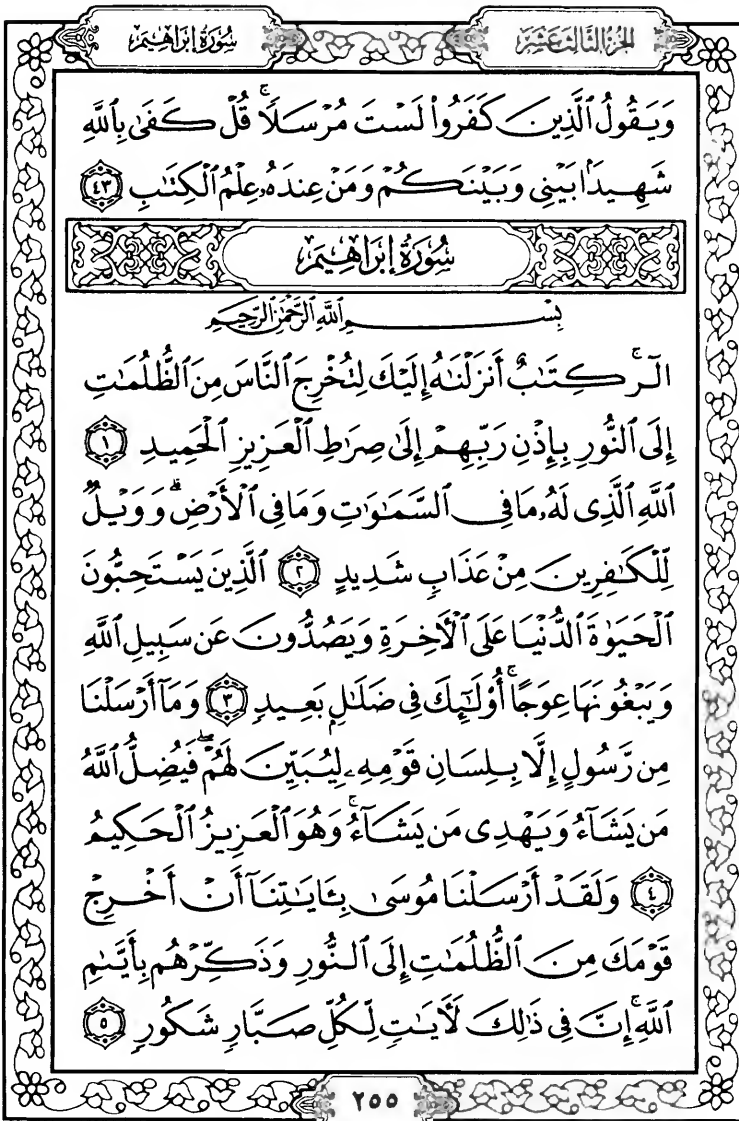 الجزء الثالث عشر
سُورَةُ إِبْرَاهِيمَ
وَيَقُولُ ٱلَّذِينَ كَفَرُوا۟ لَسْتَ مُرْسَلًا ۚ قُلْ كَفَىٰ بِٱللَّهِ
شَهِيدًۢا بَيْنِى وَبَيْنَكُمْ وَمَنْ عِندَهُۥ عِلْمُ ٱلْكِتَٰبِ ٤٣
سُورَةُ إِبْرَاهِيمَ
بِسْمِ ٱللَّهِ ٱلرَّحْمَٰنِ ٱلرَّحِيمِ
الٓر ۚ كِتَٰبٌ أَنزَلْنَٰهُ إِلَيْكَ لِتُخْرِجَ ٱلنَّاسَ مِنَ ٱلظُّلُمَٰتِ
إِلَى ٱلنُّورِ بِإِذْنِ رَبِّهِمْ إِلَىٰ صِرَٰطِ ٱلْعَزِيزِ ٱلْحَمِيدِ ١
ٱللَّهِ ٱلَّذِى لَهُۥ مَا فِى ٱلسَّمَٰوَٰتِ وَمَا فِى ٱلْأَرْضِ ۗ وَوَيْلٌ
لِّلْكَٰفِرِينَ مِنْ عَذَابٍ شَدِيدٍ ٢ ٱلَّذِينَ يَسْتَحِبُّونَ
ٱلْحَيَوٰةَ ٱلدُّنْيَا عَلَى ٱلْءَاخِرَةِ وَيَصُدُّونَ عَن سَبِيلِ ٱللَّهِ
وَيَبْغُونَهَا عِوَجًا ۚ أُو۟لَٰٓئِكَ فِى ضَلَٰلٍۭ بَعِيدٍ ٣ وَمَآ أَرْسَلْنَا
مِن رَّسُولٍ إِلَّا بِلِسَانِ قَوْمِهِۦ لِيُبَيِّنَ لَهُمْ ۖ فَيُضِلُّ ٱللَّهُ
مَن يَشَآءُ وَيَهْدِى مَن يَشَآءُ ۚ وَهُوَ ٱلْعَزِيزُ ٱلْحَكِيمُ
٤ وَلَقَدْ أَرْسَلْنَا مُوسَىٰ بِـَٔايَٰتِنَآ أَنْ أَخْرِجْ
قَوْمَكَ مِنَ ٱلظُّلُمَٰتِ إِلَى ٱلنُّورِ وَذَكِّرْهُم بِأَيَّىٰمِ
ٱللَّهِ ۚ إِنَّ فِى ذَٰلِكَ لَءَايَٰتٍ لِّكُلِّ صَبَّارٍ شَكُورٍ ٥
٢٥٥